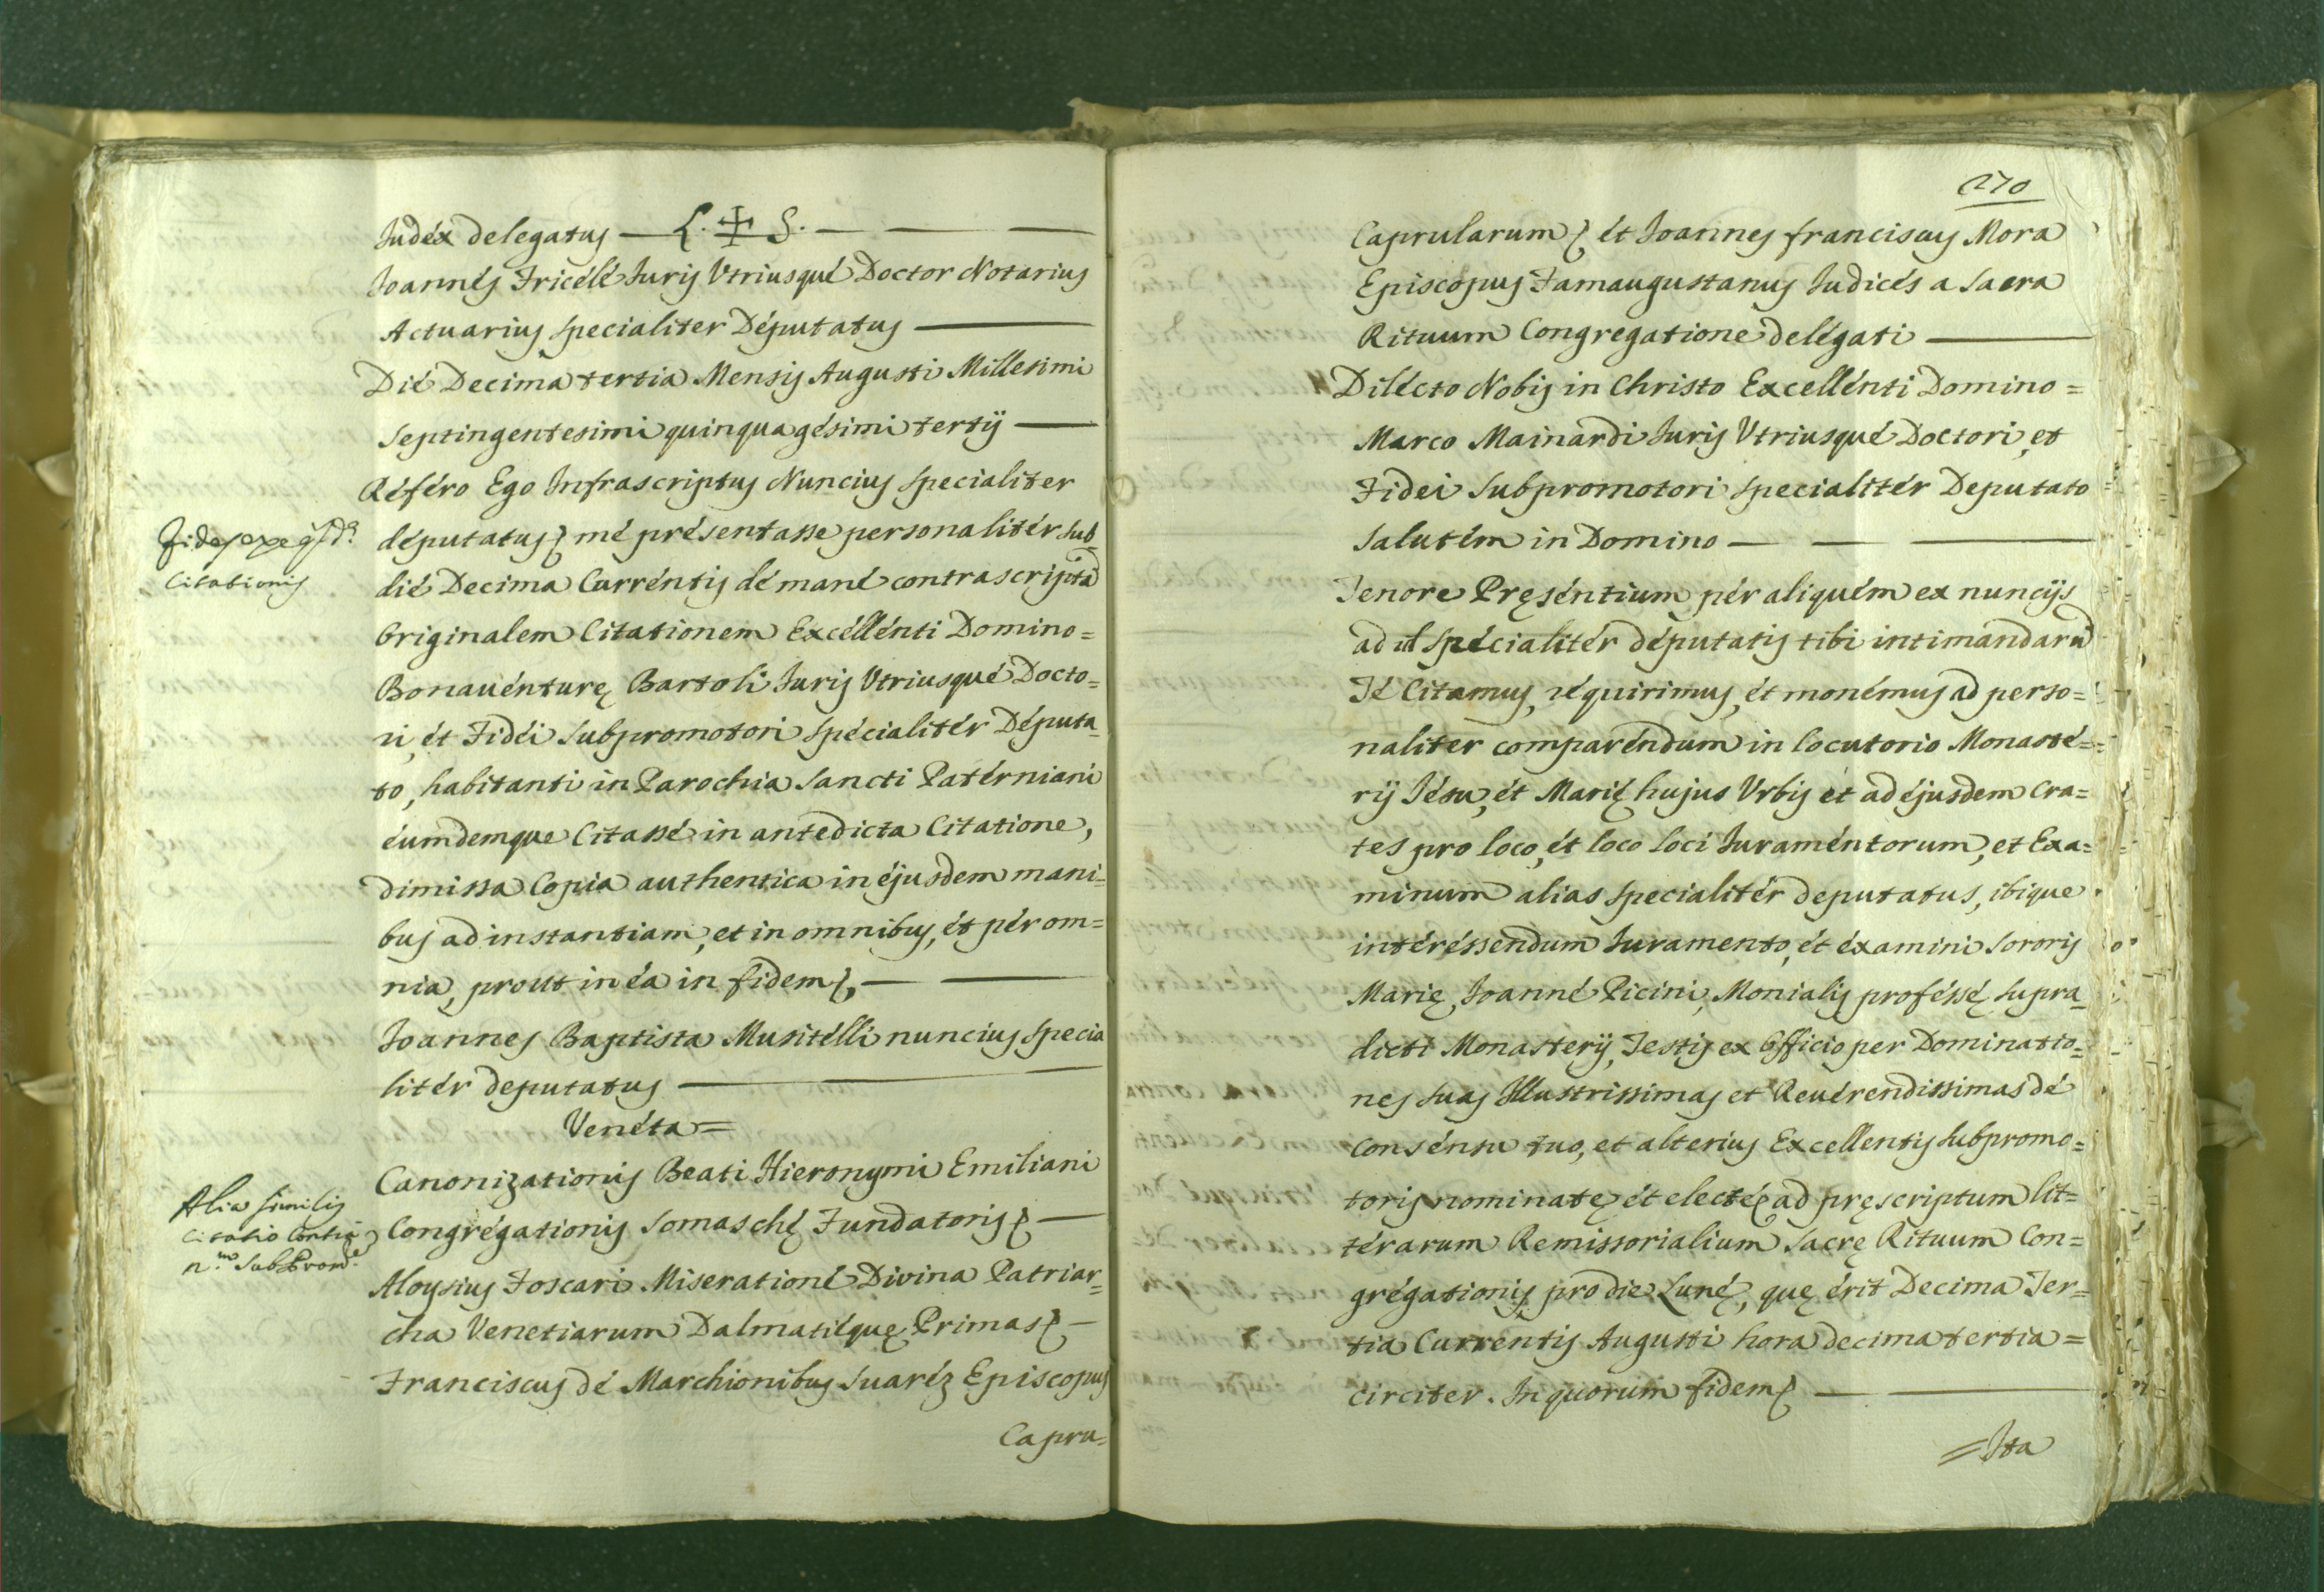 Judéx delegatus — L. ✠ S. —
Joannés Fricélé Juris Vtriusqué Doctor Notarius
Actuarius specialiter Députatus —
Dié Decima tertia Mensis Augusti Millesimi
septingentesimi quinquagésimi tertij —
Référo Ego Infrascriptus Nuncius specialiter
députatus, mé présentasse personalitér sub
dié Decima Curréntis dé mané contrascripta
Originalem Citationem Excéllénti Domino =
Bonauénturę Bartoli Juris Vtriusqué Docto=
ri, ét Fidéi Subpromotori spécialitér Députa_
to, habitanti in Parochia Sancti Patérniani
éumdemque Citassé in antedicta Citatione,
dimissa Copia authentica in éjusdem mani=
bus ad instantiam, et in omnibus, ét pér om=
nia, prout in éa in fidem, —
Joannes Baptista Musitélli nuncius specia
litér deputatus —
Citationis
Venéta =
Canonizationis Beati Hieronymi Emiliani
Congrégationis Somaschę Fundatoris —
Aloysius Foscari Miserationé Divina Patriar=
cha Venetiarum Dalmatiéquę Primas —
Franciscus dé Marchionibus Suaréz Episcopus
Alia similis
Citatio
Capru=
270
Caprularum, ét Joannes franciscus Mora
Episcopus Famaugustanus Judicés a Sacra
Rituum Congregatione delégati —
Diłécto Nobis in Christo Excellénti Domino =
Marco Mainardi Juris Vtriusqué Doctori, et
Fidei Subpromotori specialitér Deputato
Salutém in Domino —
Tenore Pręséntium pér aliquém ex nuncijs
ad id spécialitér députatis tibi intimandarum
Té Citamus, réquirimus, ét monémus ad perso=
naliter comparéndum in locutorio Monasté=
rij Jésu, ét Marię hujus Vrbis ét ad éjusdem Cra=
tes pro loco, ét loco loci Juraméntorum, et Exa=
minum alias specialitér deputatus, ibique
intéréssendum Juramento, ét éxamini Sororis
Marię Joanné Picini, Monialis proféssę supra_
dicti Monasterij, Testis ex Officio per Dominatio=
nes suas Illustrissimas et Reuérendissimas dé
consénsu tuo, et alterius Excellentis Subpromo=
toris nominatę ét electę ad pręscriptum lit=
térarum Remissorialium Sacrę Rituum Con=
grégationis, pro die Lunę, quę érit Decima Ter=
tia Curréntis Augusti hora decima tertia =
circiter. In quorum fidem —
= Ita